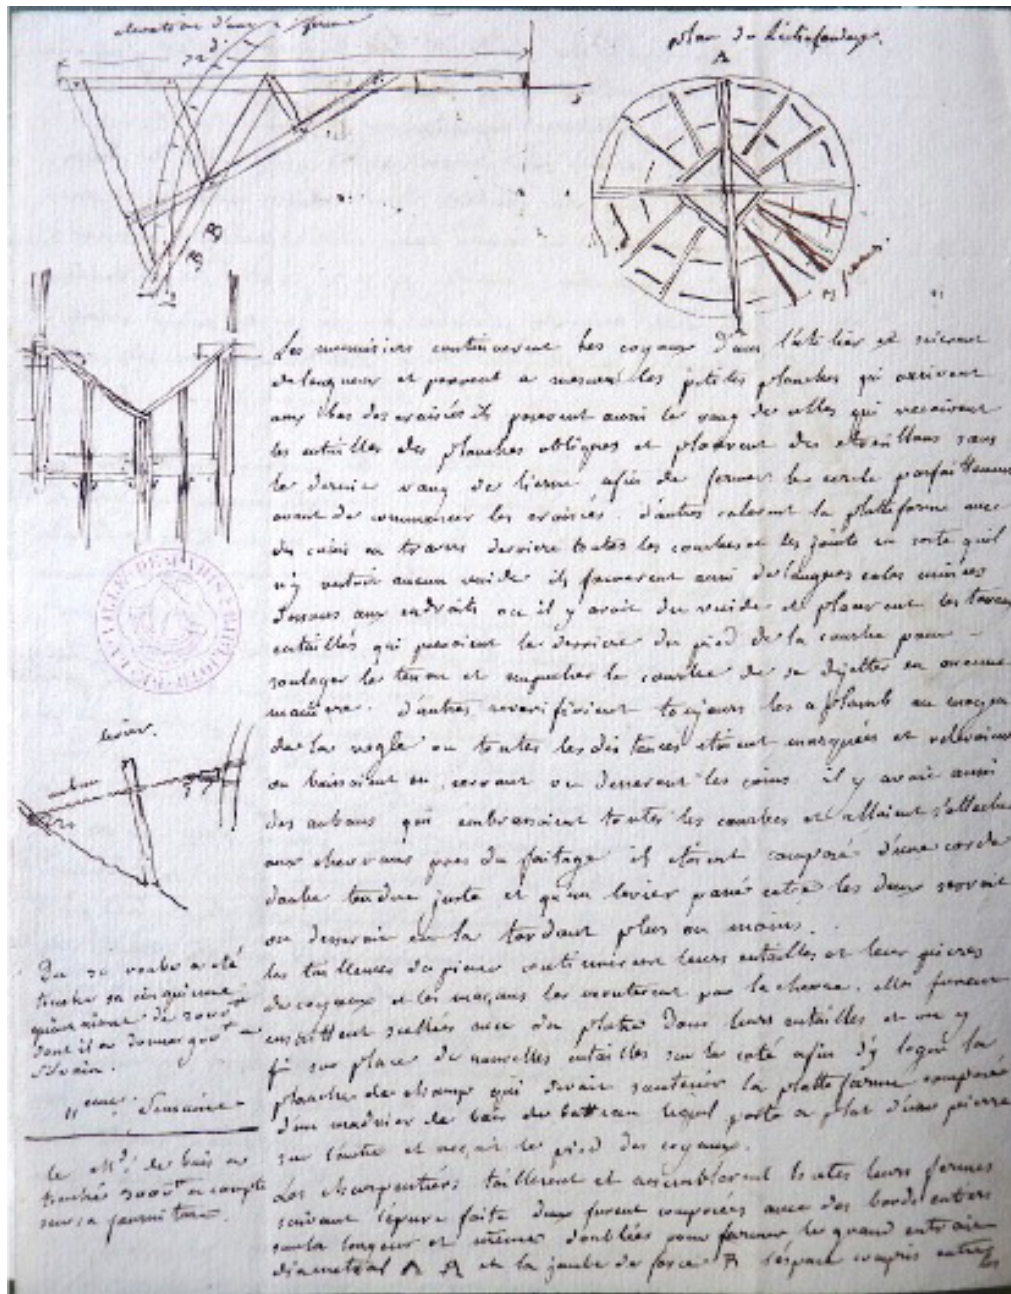 elevation d'une ferme
plan de l'echafaudage.
A
B
B
Les menuisiers continuerent les coyaux dans l'attelier et scierent
de longueur et poserent a mesure les petites planches qui arrivent
aux des croisées ils poserent aussi le rang de celles qui recoivent
les entailles des planches obliques et placerent des etresillons sans
le dernier rang de lierne afin de former le cercle parfaittement
avant de commencer les croisées. d'autres calerent la platteforme avec
des coins en travers derriere toutes les courbes et les joints en sorte quil
n'y restoit aucun vuide ils fourerent aussi de longues cales minces
dessous aux endroits ou il y avoit du vuide et placerent les
entaillés qui prenoient le derriere du pied de la courbe pour
soulager le tenon et empecher la courbe de se dejetter en aucune
maniere. d'autres reverifioient toujours les aplomb au moyen
de la regle ou toutes les distances etoient marquées et relevoient
ou baissoient en serrant ou desserrent les coins il y avoit aussi
des aubans qui embrassoient toutes les courbes et alloient s'attacher
aux chevrons pres du faitage ils etoient composé d'une corde
double tendue juste et qu'un levier passé entre les deux serroit
ou desseroit en la tordant plus ou moins.
les tailleurs de pierre continuerent leurs entailles et leur pierres
de coyaux et les maçons les monterent par la chevre. elles furent
ensuitte scellées avec du platre dans leurs entailles et on y
fi sur place de nouvelles entailles sur le coté afin d'y loger la
planche de champ qui devoit soutenir la platteforme composée
d'un madrier de bois de batteau lequel porte a plat d'une pierre
sur l'autre et reçoit le pied des coyaux.
Les charpentiers taillerent et assemblerent toutes leurs fermes
suivant l'épure faite deux furent composées avec des bords entiers
sur la longeur et même doublées pour former le grand entrait
diametral A A et la jambe de force B l'espace compris entre les
levier.
auban
toucher sa cinquieme
dont il a donné
11 eme. Semaine
le Md. de bois a
touché 3000 tt a compte
sur sa fourniture.